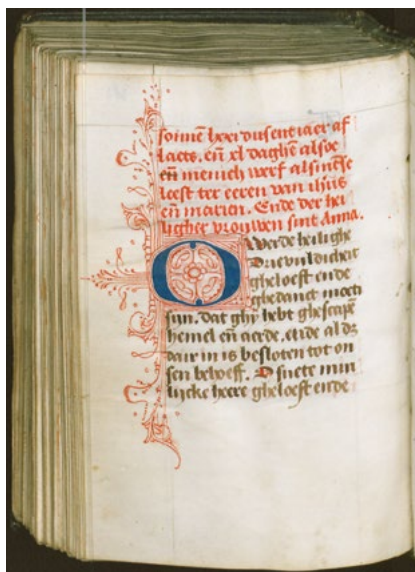 somē heer dusent iaer af
laets. eñ xl daghē alsoe
eñ menich werf alsmēse
leest ter eeren van ihūs
eñ marien. Ende der hei
ligher vrouwen sint Anna.
O Werde heilighe
Drievuldicheit
gheloeft ende
ghedanct moet
sijn. dat ghij hebt ghescapē
hemel eñ aerde. ende al dz
dair in is besloten tot on
sen behoeff. O suete min
lijcke heere gheloeft ende